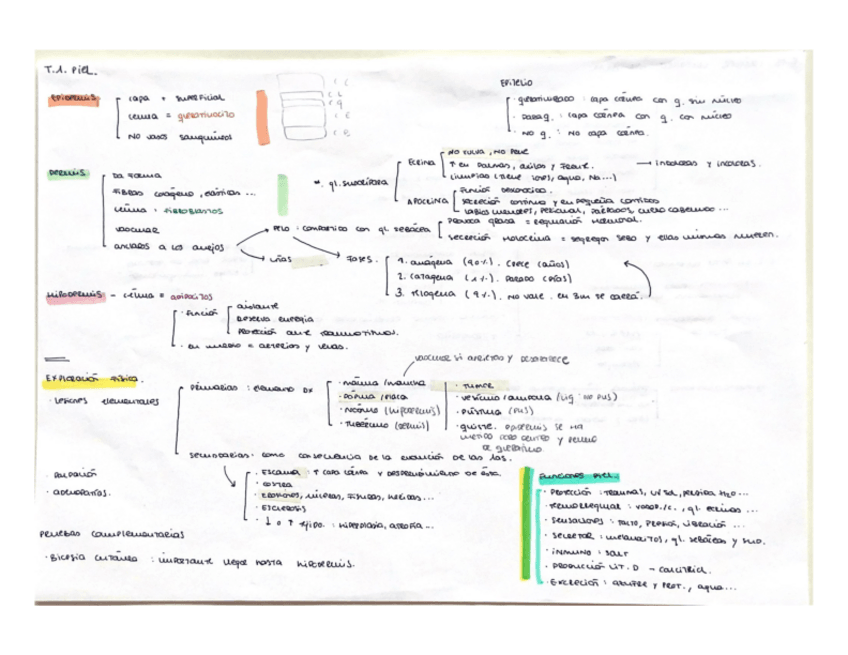 T.1. Piel.
Epitelio
EPIDERMIS
capa + superficial
célula = queratinocito
NO vasos sanguíneos
queratinizado : capa córnea con q. sin núcleo
paraq. : capa córnea con q. con núcleo
NO q. : NO capa córnea.
DERMIS
Da forma
Fibras colágeno, elásticas ...
célula : fibroblastos
vascular
anclados a los anejos
gl. sudorípara
ECRINA
NO vulva, NO pene
↑ en palmas, axilas y frente.
→ incoloras y inodoras.
APOCRINA
Función desconocida.
secreción continua y en pequeña cantidad
labios menores, perianal, párpados, cuero cabelludo ...
PELO : compartido con gl. sebácea
Provoca grasa = regulación hormonal.
secreción holocrina = segregan sebo y ellas mismas mueren.
uñas
FASES.
1. anágena (90%). Crece (años)
2. catágena (1%). Parado (días)
3. telógena (9%). No vale. En 3m se caerá.
HIPODERMIS - célula = adipocitos
Función
aislante
Reserva energía
Protección ante traumatismos.
en medio = arterias y venas.
vascular si aprietas y desaparece
EXPLORACIÓN FÍSICA.
lesiones elementales
Primarias : elemento DX
mácula / mancha
pápula / placa
nódulo (hipodermis)
tubérculo (dermis)
tumor
vesícula / ampolla (líq. no pus)
pústula (pus)
quiste. epidermis se ha metido para dentro y relleno de queratina.
secundarias: como consecuencia de la evolución de las 1as.
Escama : ↑ capa córnea y desprendimiento de ésta.
costra
erosiones, úlceras, fisuras, heridas...
Esclerosis
↓ o ↑ tejido. : hiperplasia, atrofia ...
palpación
adenopatías.
Pruebas complementarias
Biopsia cutánea : importante llegar hasta hipodermis.
Funciones piel.
Protección : traumas, UV sol, pérdida H₂O ...
Termorregular : vasod./c., gl. ecrinas ...
sensaciones : tacto, presión, vibración ...
secretor : melanocitos, gl. sebáceas y sud.
inmuno : SALT
Producción Vit. D - calcitriol.
Excreción : azufre y prot., agua...